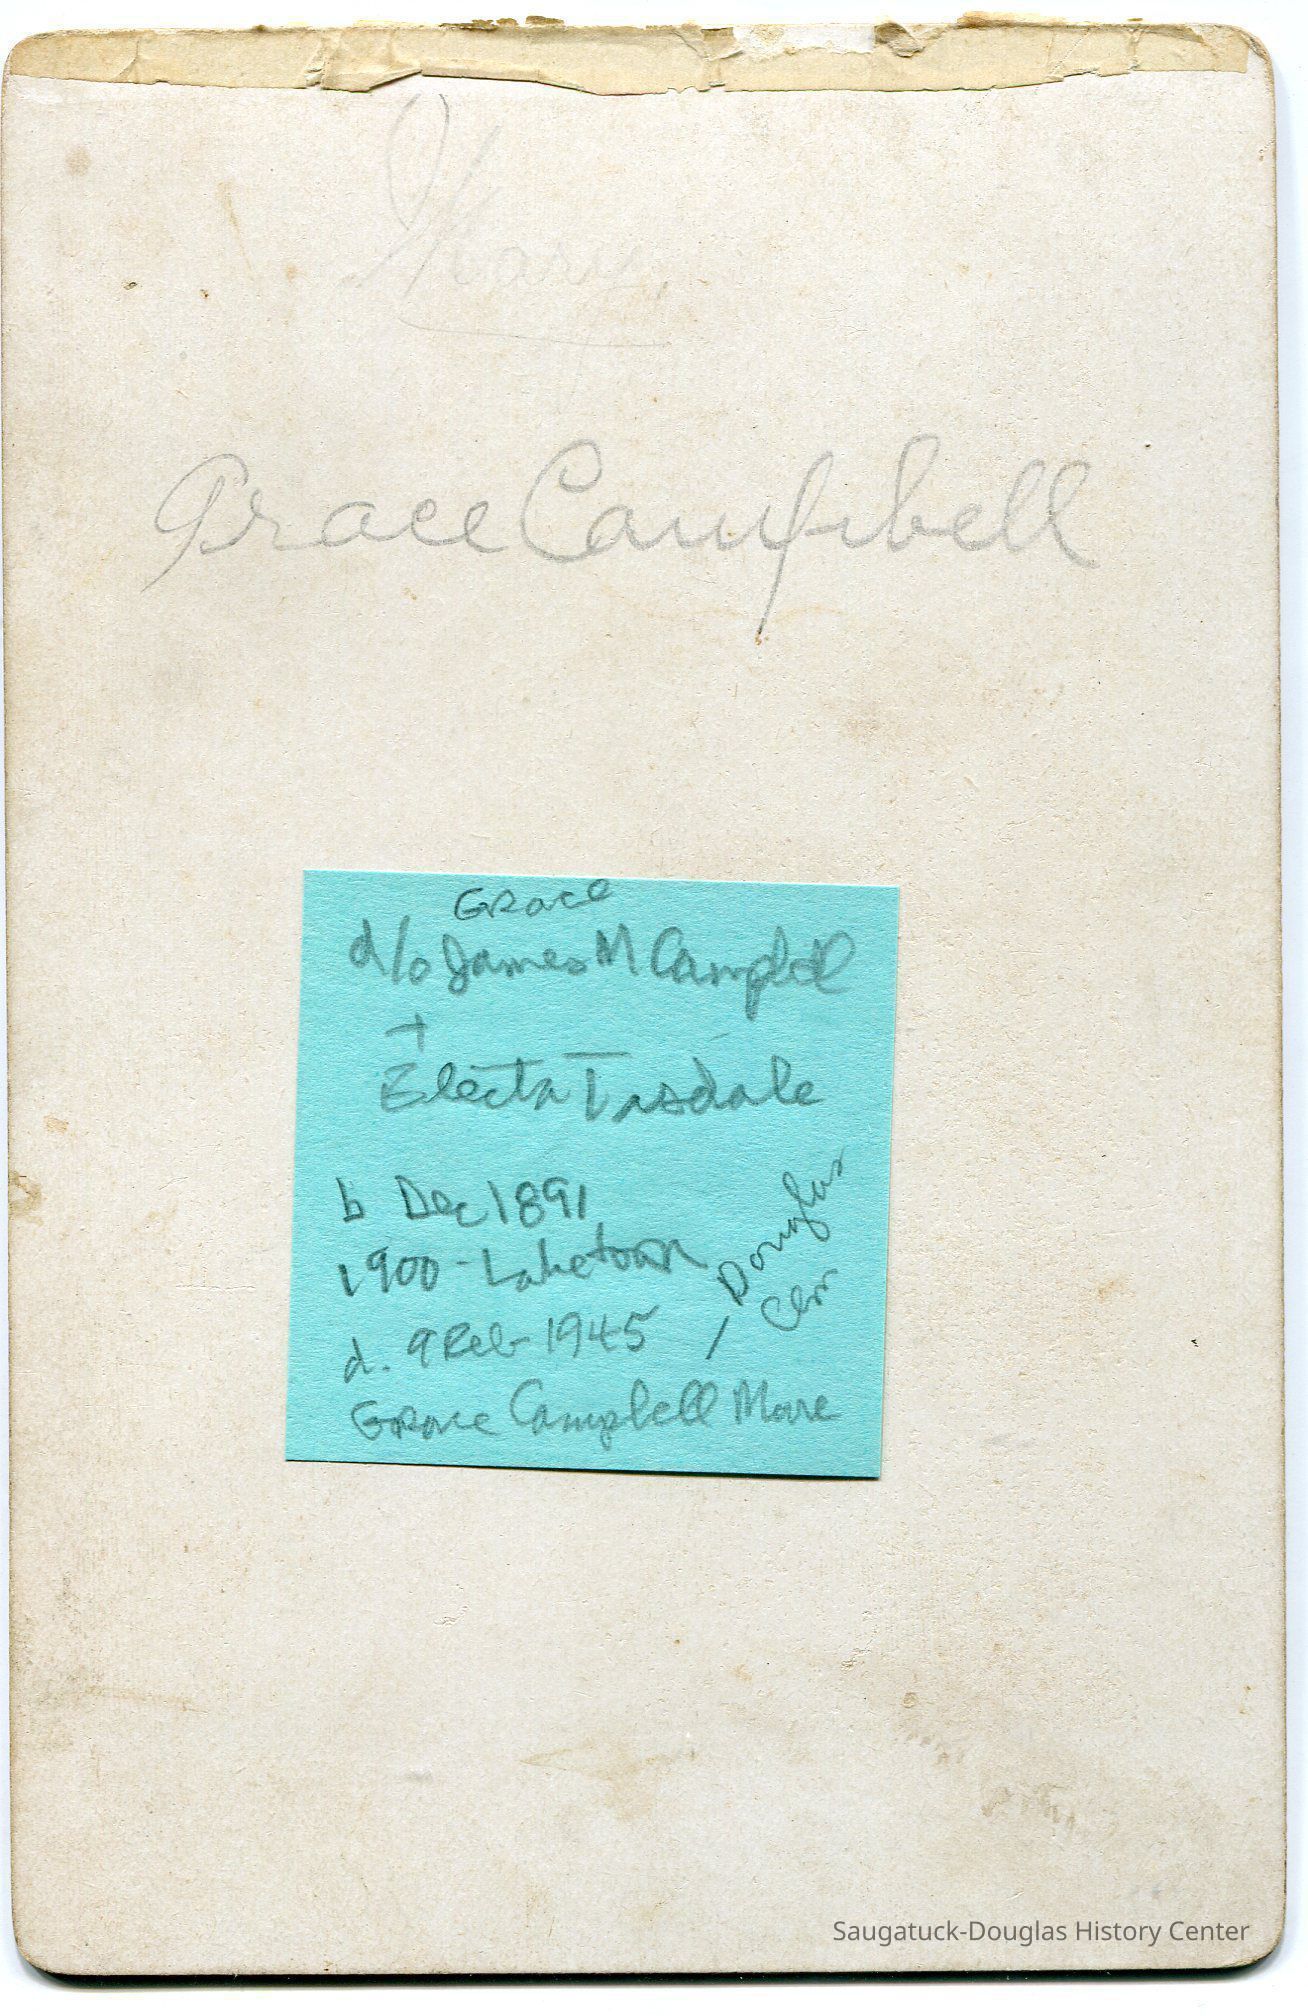 Mary
Grace Campbell
Grace
d/o James M Campbell
+
Electa Tisdale
b Dec 1891
1900 - Laketown
d. 9 Feb 1945 / Douglas
Cem
Grace Campbell Moore
Saugatuck-Douglas History Center